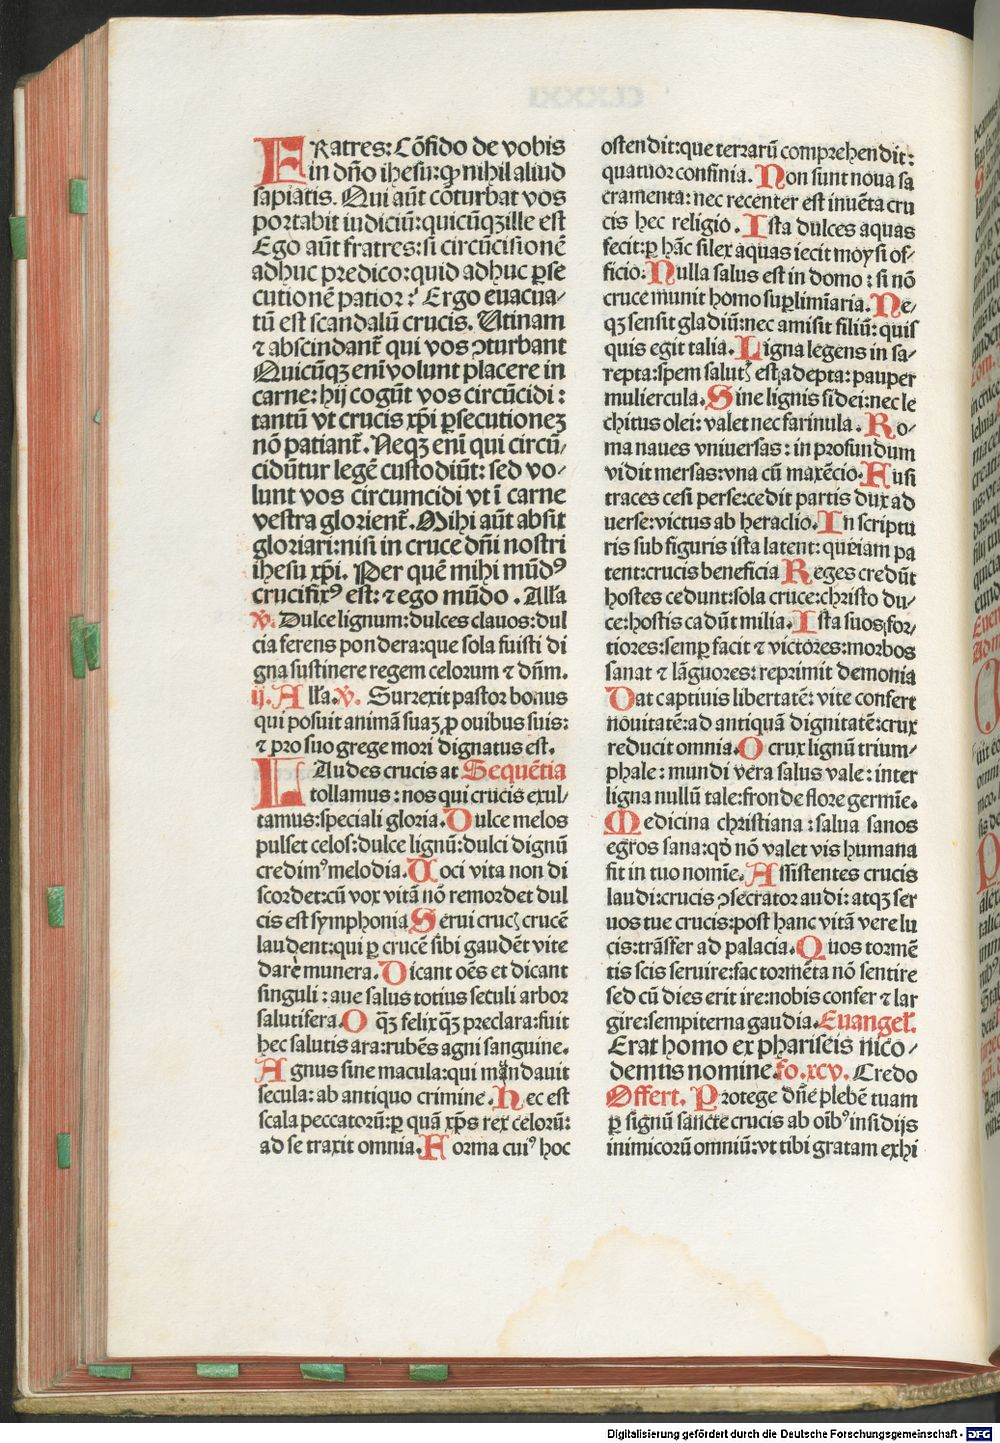 FRatres: Cõfido de vobis
in dño ihesu: qꝫ nihil aliud
sapiatis. Qui aũt cõturbat vos
portabit iudiciũ: quicũqꝫ ille est
Ego aũt fratres: si circũcisionẽ
adhuc predico: quid adhuc ꝑse
cutionẽ patior? Ergo euacua⸗
tũ est scandalũ crucis. Utinam
⁊ abscindant̃ qui vos ↄturbant
Quicũqꝫ enĩ volunt placere in
carne: hij cogũt vos circũcidi:
tantũ vt crucis xp̃i ꝑsecutioneꝫ
nõ patiant̃. Neqꝫ enĩ qui circũ⸗
cidũtur legẽ custodiũt: sed vo⸗
lunt vos circumcidi vt ĩ carne
vestra glorient̃. Mihi aũt absit
gloriari: nisi in cruce dñi nostri
ihesu xp̃i. Per quẽ mihi mũdꝰ
crucifixꝰ est: ⁊ ego mũdo. Alĺa
℣. Dulce lignum: dulces clauos: dul
cia ferens pondera: que sola fuisti di
gna sustinere regem celorum ⁊ dñm.
ij. Alĺa. ℣. Surrexit pastor bonus
qui posuit animã suaꝫ ꝓ ouibus suis:
⁊ pro suo grege mori dignatus est.
LAudes crucis at Sequẽtia
tollamus: nos qui crucis exul⸗
tamus: speciali gloria. Dulce melos
pulset celos: dulce lignũ: dulci dignũ
credimꝰ melodia. Uoci vita non di
scordet: cũ vox vitã nõ remordet dul
cis est symphonia Serui crucꝭ crucẽ
laudent: qui ꝑ crucẽ sibi gaudẽt vite
dare munera. Dicant oẽs et dicant
singuli: aue salus totius seculi arbor
salutifera. O qꝫ̃ felix qꝫ̃ preclara: fuit
hec salutis ara: rubẽs agni sanguine.
Agnus sine macula: qui mũdauit
secula: ab antiquo crimine. Hec est
scala peccatorũ: ꝑ quã xp̃s rex celorũ:
ad se traxit omnia. Forma cuiꝰ hoc
ostendit: que terrarũ comprehendit:
quatuor confinia. Non sunt noua sa
cramenta: nec recenter est inuẽta cru
cis hec religio. Ista dulces aquas
fecit: ꝑ hãc silex aquas iecit moysi of⸗
ficio: Nulla salus est in domo: si nõ
cruce munit homo suꝑlimĩaria. Ne⸗
qꝫ sensit gladiũ: nec amisit filiũ: quis
quis egit talia. Ligna legens in sa⸗
repta: spem salutꝭ est adepta: pauper
muliercula. Sine lignis fidei: nec le
chitus olei: valet nec farinula. Ro⸗
ma naues vniuersas: in profundum
vidit mersas: vna cũ maxẽcio. Fusi
traces cesi perse: cedit partis dux ad
uerse: victus ab heraclio. In scriptu
ris sub figuris ista latent: quẽiam pa
tent: crucis beneficia Reges credũt
hostes cedunt: sola cruce: christo du⸗
ce: hostis cadũt milia. Ista suos for⸗
tiores: semꝑ facit ⁊ victores: morbos
sanat ⁊ lãguores: reprimit demonia
Dat captiuis libertatẽ: vite confert
nouitatẽ: ad antiquã dignitatẽ: crux
reducit omnia. O crux lignũ trium⸗
phale: mundi vera salus vale: inter
ligna nullũ tale: fronde flore germĩe.
Medicina christiana: salua sanos
egros sana: qđ nõ valet vis humana
fit in tuo nomĩe. Assistentes crucis
laudi: crucis ↄsecrator audi: atqꝫ ser
uos tue crucis: post hanc vitã vere lu
cis: trãsfer ad palacia. Quos tormẽ
tis scis seruire: fac tormẽta nõ sentire
sed cũ dies erit ire: nobis confer ⁊ lar
gire: sempiterna gaudia. Euangeĺ.
Erat homo ex phariseis nico⸗
demus nomine. fo. xcv. Credo
Offert. Protege dñe plebẽ tuam
ꝑ signũ sancte crucis ab oĩbꝰ insidijs
inimicorũ omniũ: vt tibi gratam exhi
Digitalisierung gefördert durch die Deutsche Forschungsgemeinschaft - DFG